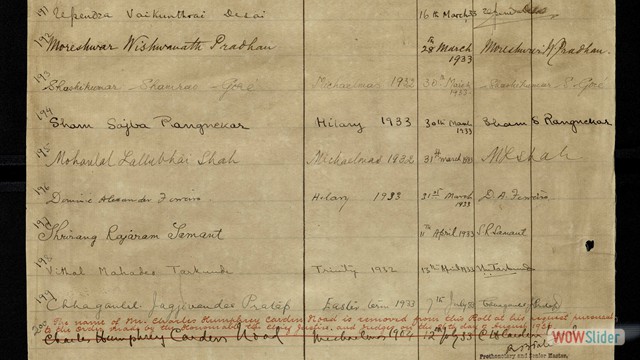 191 Upendra Vaikunthrai Desai 16th March 33
192 Moreshwar Wishwanath Pradhan 28th March 1933 Moreshwar W Pradhan.
193 Shashikumar Shamrao Goré Michaelmas 1932 30th March 1933 Shashikumar S. Goré
194 Sham Sajba Rangnekar Hilary 1933 30th March 1933 Sham S Rangnekar
195 Mohanlal Lallubhai Shah Michaelmas 1932 31st March 1933 M L Shah
196 Dominic Alexander Ferreiro Hilary 1933 31st March 1933 D. A. Ferreiro
197 Shrirang Rajaram Samant 11th April 1933 S. R. Samant
198 Vithal Mahadeo Tarkunde Trinity 1932 Tarkunde
199 Chhaganlal Jagjivandas Pratap Easter term 1933 7th July 33
The name of Mr. Charles Humphrey Carden Noad is removed from this Roll at his request pursuant
to the order made by the Honourable the Chief Justice and Judges on the
200 Charles Humphrey Carden Noad Michaelmas 1904 12 July 33 C H Carden
Prothonotary and Senior Master.
WOWSlider